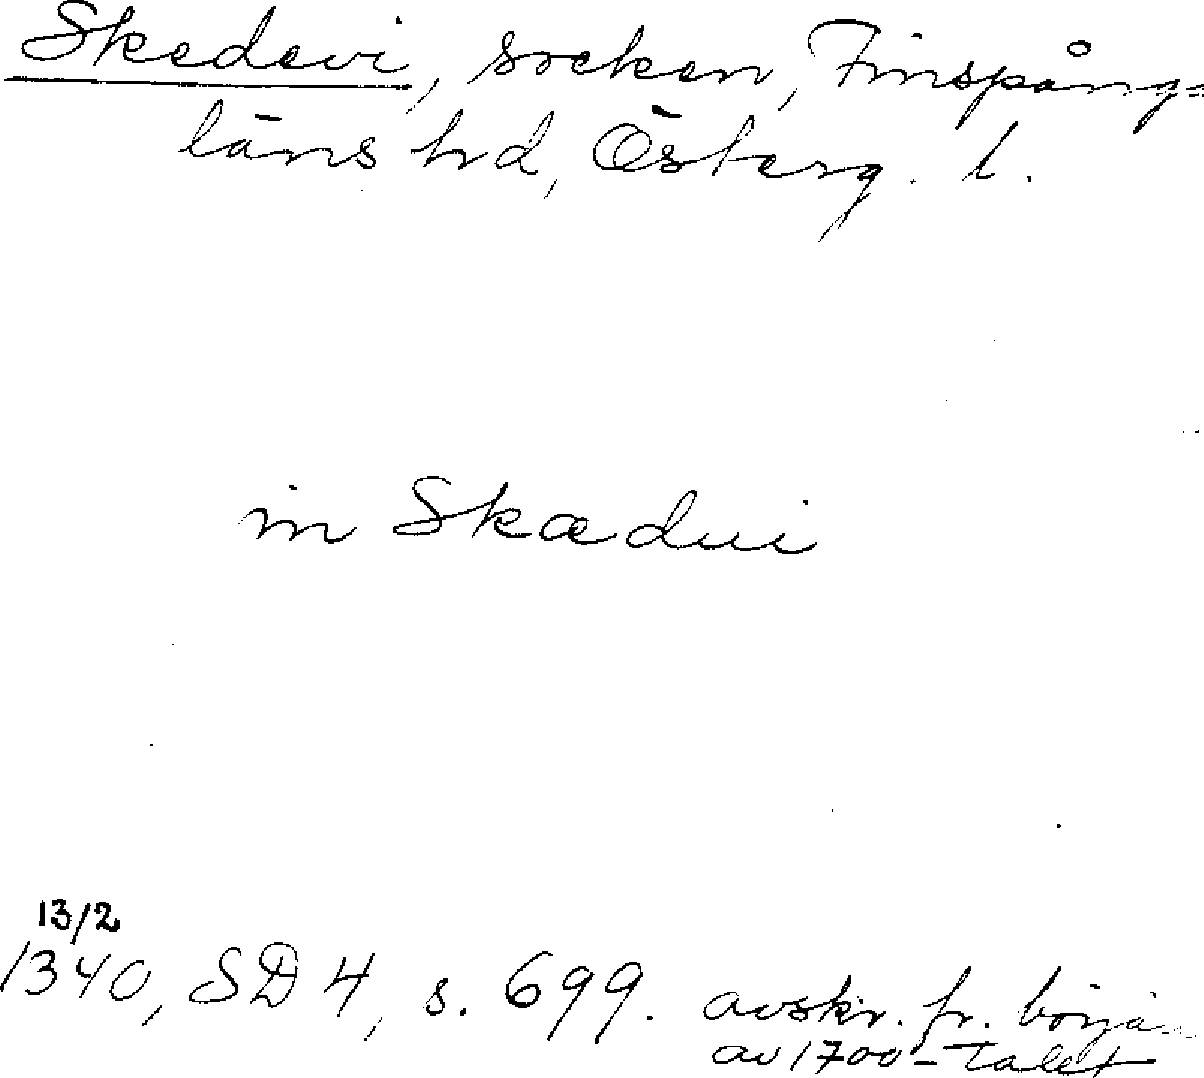 Skedevi, socken, Finspångs
läns hd, Österg. l.
in Skædui
13/2
1340, SD 4, s. 699. avskr. fr. början
av 1700-talet